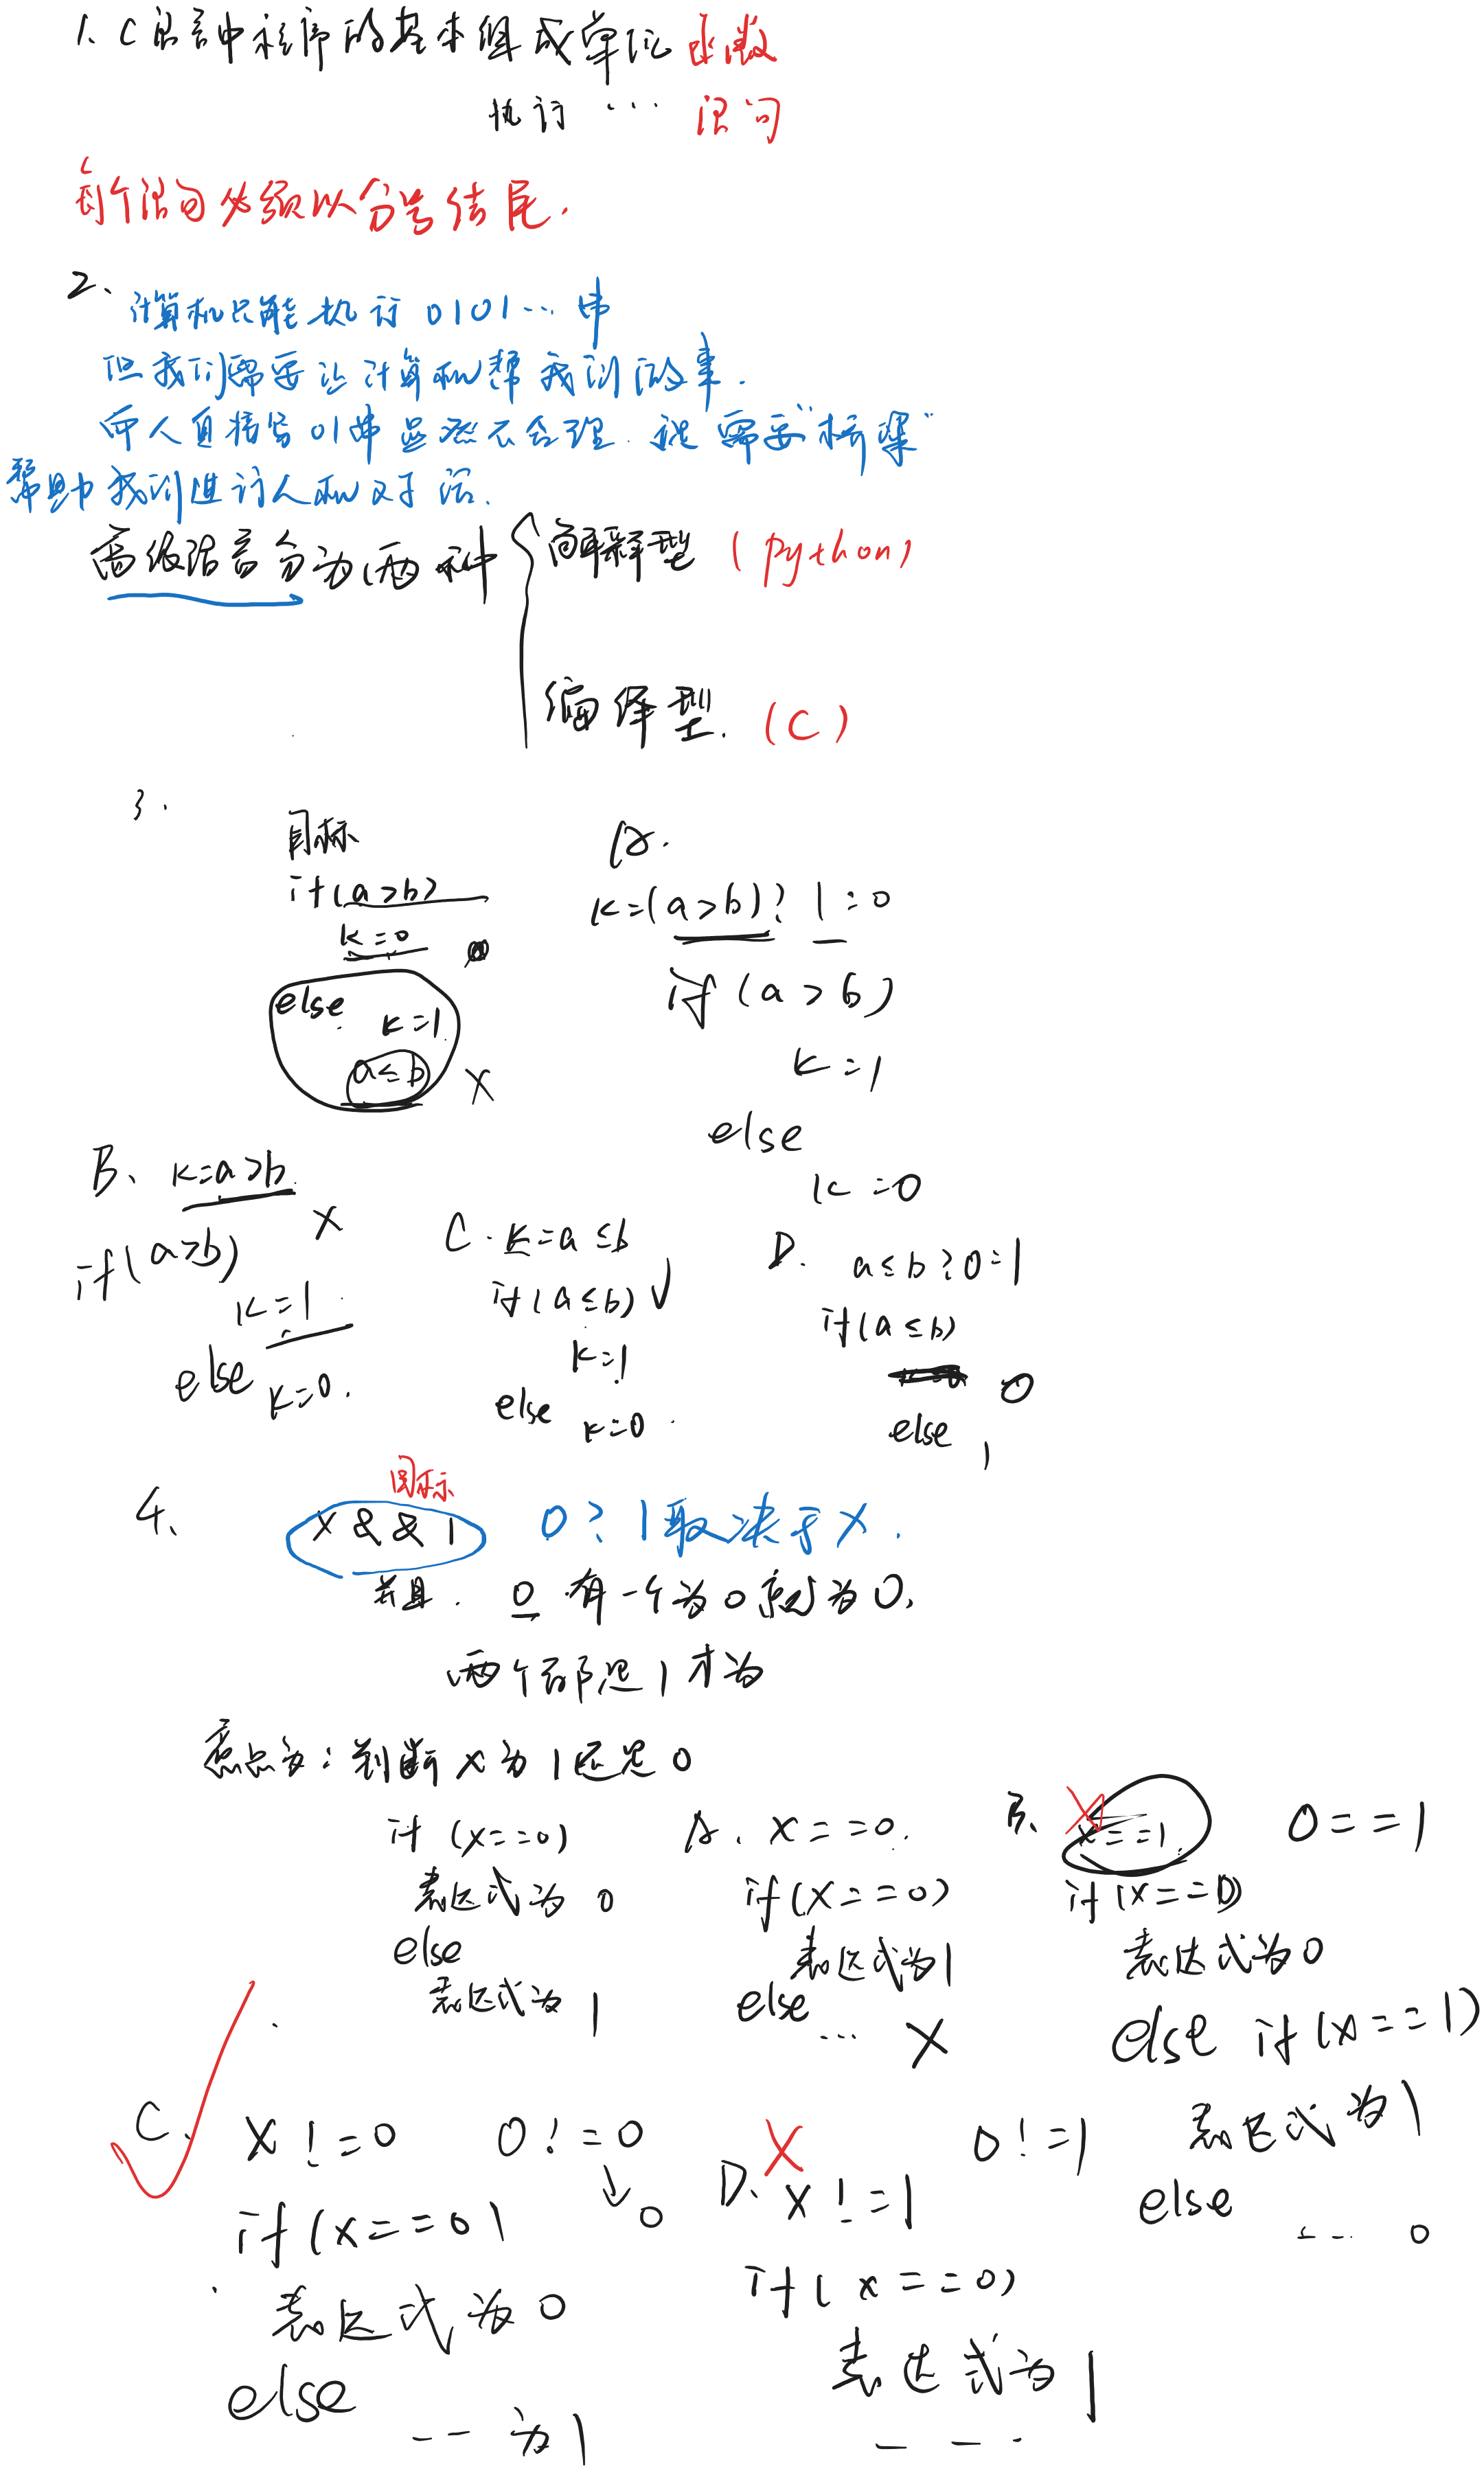 1、C语言中程序的基本组成单位 函数
执行 … 语句
每个语句必须以分号结尾.
2、
计算机只能执行 0101… 串
但我们需要让计算机帮我们做事.
而人直接写01串显然不合理. 就需要"桥梁"
帮助我们进行人机对话.
高级语言分为两种
解释型 (python)
编译型. (C)
3.
目标
if(a>b)
k=0
else
k=1
a≤b
X
A.
k=(a>b)? 1:0
if(a>b)
k=1
else
k=0
B、k=a>b
X
if(a>b)
k=1
else k=0.
C. k=a≤b
if(a≤b) √
k=1
else k=0.
D. a≤b?0:1
if(a≤b)
0
else 1
4、
目标
X&&1 0?1取决于X.
并且. 0 有一个为0就为0.
两个都是1才为
意思为:判断x为1还是0
if (x==0)
表达式为 0
else
表达式为 1
A. x==0.
if(x==0)
表达式为1
else… X
B、X x==1. 0==1
if(x==0)
表达式为0
else if(x==1)
表达式为1
else
… 0
C. X!=0 0!=0
0
if(x==0)
表达式为0
else
…为1
D. X x!=1 0!=1
if(x==0)
表达式为1
…